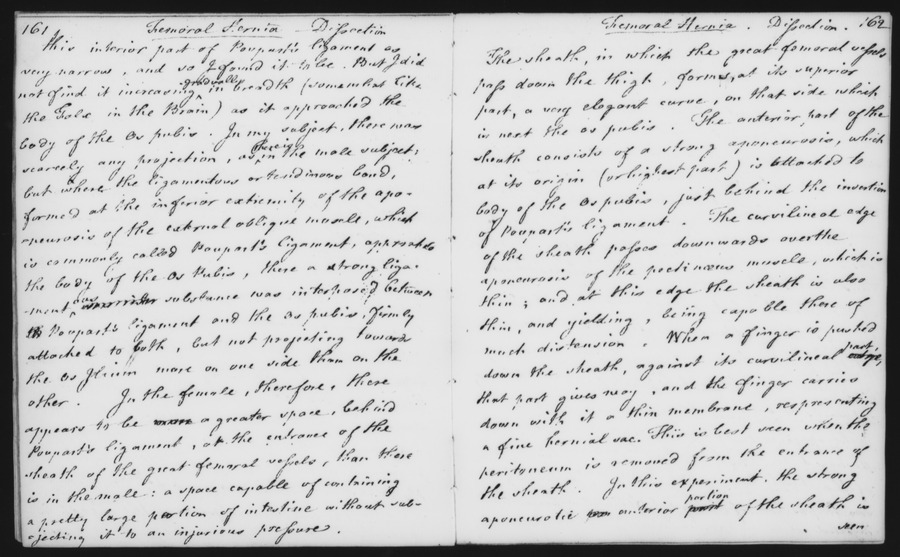 161 Femoral Hernia Dissection
this interior part of Poupart's ligament as
very narrow, and so I found it to be. But I did
not find it increasing gradually in breadth (somewhat like
the Falx in the Brain) as it approached the
body of the Os pubis. In my subject, there was
scarcely any projection, as in the male subject;
but where the ligamentous or tendinous band,
formed at the inferior extremity of the apo-
neurosis of the external oblique muscle, which
is commonly called Poupart's ligament, approaches
the body of the Os Pubis, there a strong liga-
mentous substance was interposed between
Poupart's ligament and the os pubis, firmly
attached to both, but not projecting towards
the Os Ilium more on one side than on the
other. In the female, therefore, there
appears to be a greater space, behind
Poupart's ligament, at the entrance of the
sheath of the great femoral vessels, than there
is in the male: a space capable of containing
a pretty large portion of intestine without sub-
jecting it to an injurious pressure.
Femoral Hernia. Dissection. 162
The sheath, in which the great femoral vessels
pass down the thigh, forms, at its superior
part, a very elegant curve, on that side which
is next the os pubis. The anterior part of the
sheath consists of a strong aponeurosis, which
at its origin (or highest part) is attached to
body of the Os pubis, just behind the insertion
of Poupart's ligament. The curvilineal edge
of the sheath passes downwards over the
aponeurosis of the pectinæus muscle, which is
thin; and at this edge the sheath is also
thin, and yielding, being capable there of
much distension. When a finger is pushed
down the sheath, against its curvilineal part,
that part gives way, and the finger carries
down with it a thin membrane, respresenting
a fine hernial sac. This is best seen when the
peritoneum is removed from the entrance of
the sheath. In this experiment, the strong
aponeurotic anterior portion of the sheath is
seen